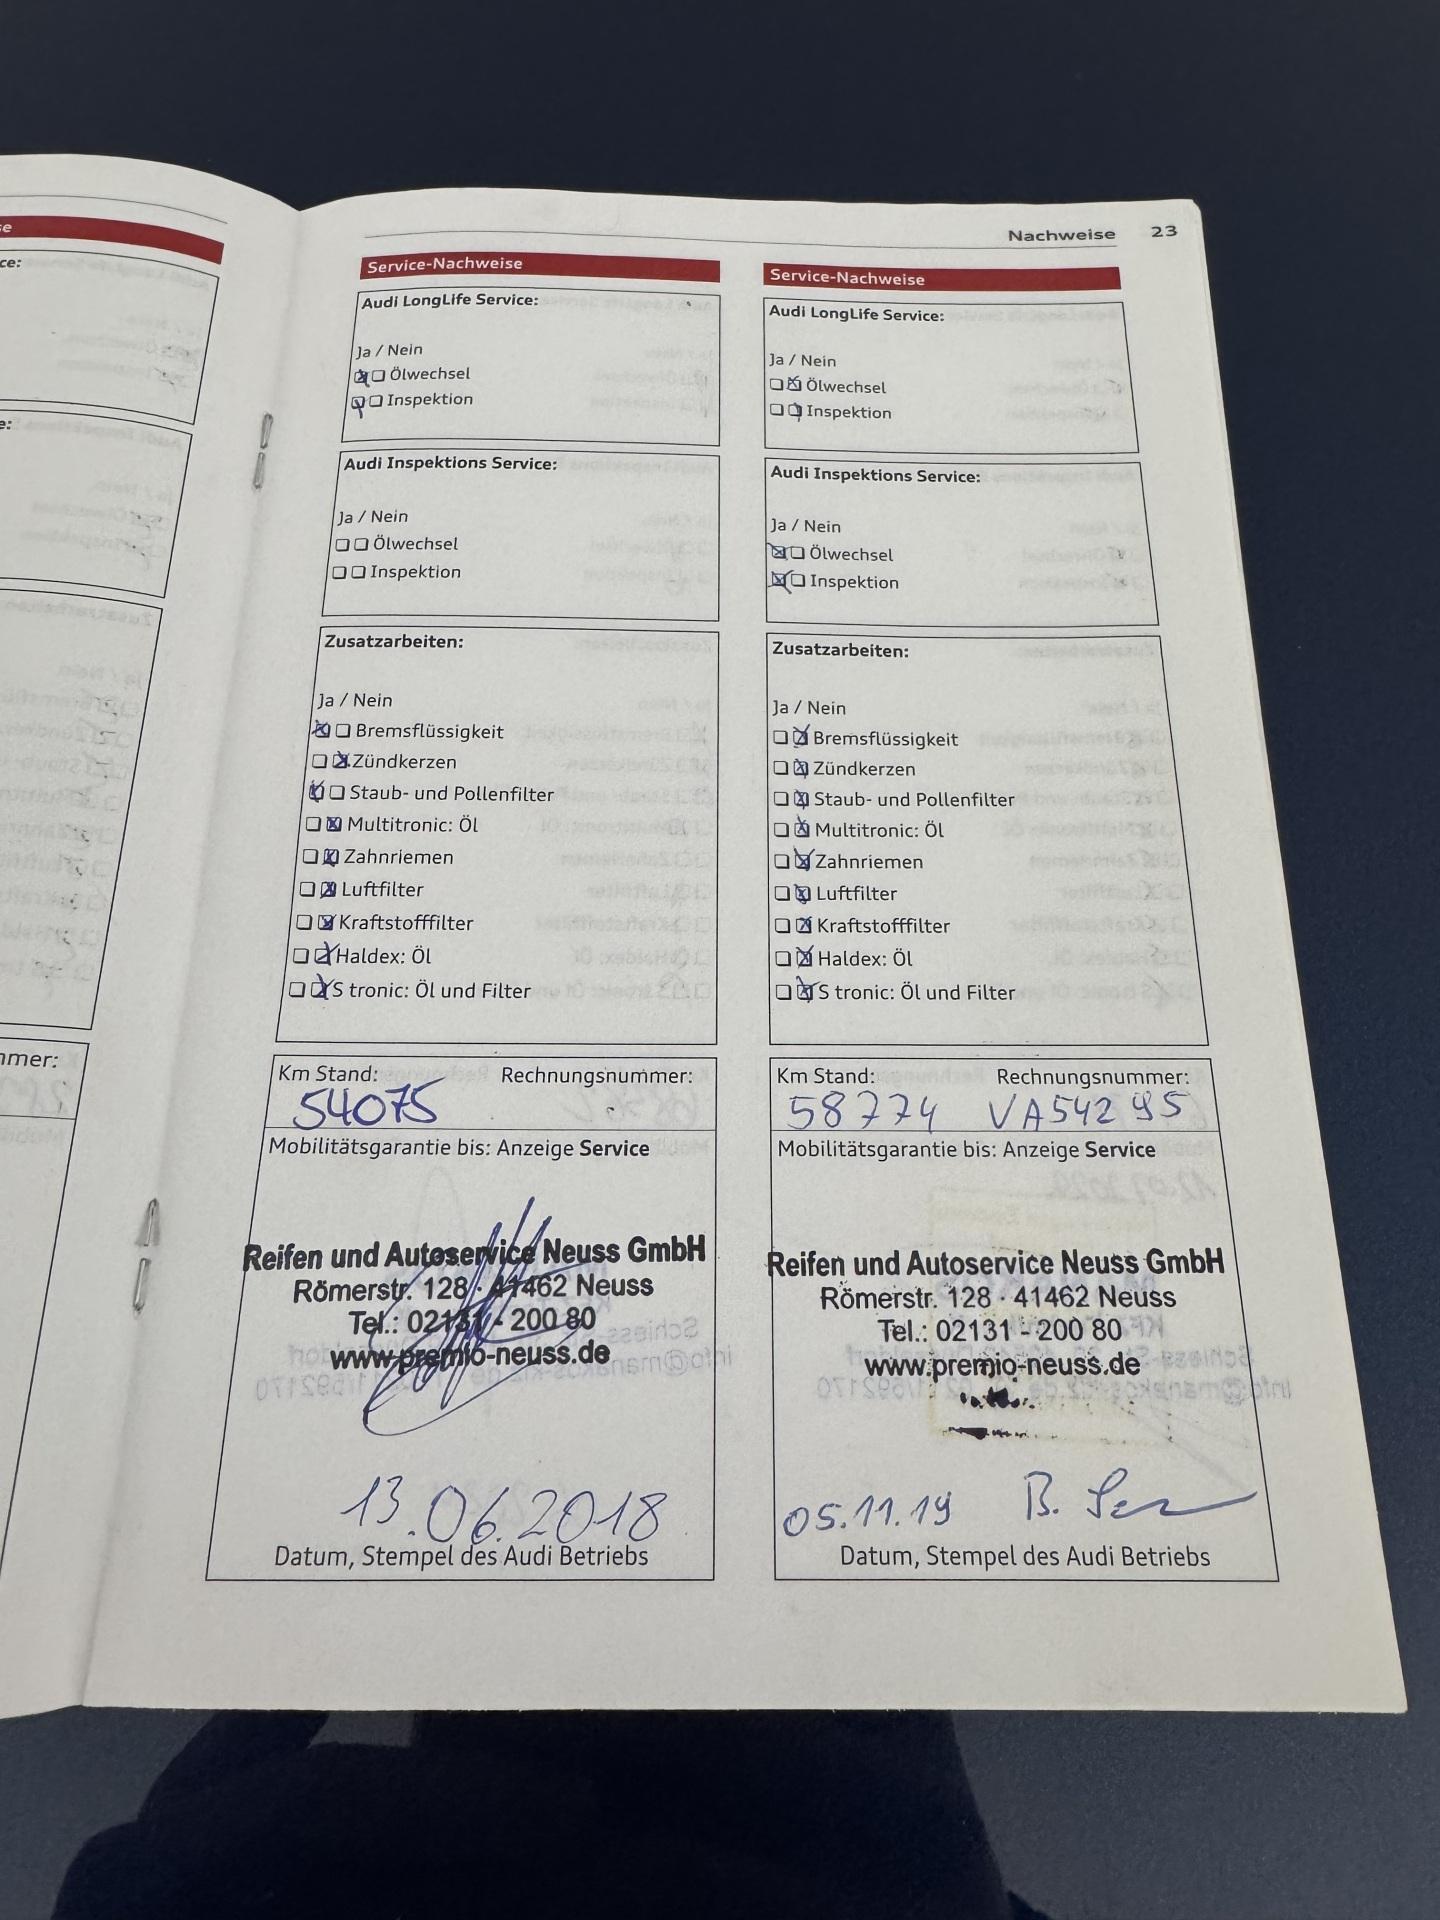 Nachweise 23
se
ce:
e:
mmer:
Service-Nachweise
Audi LongLife Service:
Ja / Nein
Ölwechsel
Inspektion
Audi Inspektions Service:
Ja / Nein
Ölwechsel
Inspektion
Zusatzarbeiten:
Ja / Nein
Bremsflüssigkeit
Zündkerzen
Staub- und Pollenfilter
Multitronic: Öl
Zahnriemen
Luftfilter
Kraftstofffilter
Haldex: Öl
S tronic: Öl und Filter
Km Stand: Rechnungsnummer:
54075
Mobilitätsgarantie bis: Anzeige Service
Reifen und Autoservice Neuss GmbH
Römerstr. 128 · 41462 Neuss
Tel.: 02131 - 200 80
www.premio-neuss.de
13.06.2018
Datum, Stempel des Audi Betriebs
Service-Nachweise
Audi LongLife Service:
Ja / Nein
Ölwechsel
Inspektion
Audi Inspektions Service:
Ja / Nein
Ölwechsel
Inspektion
Zusatzarbeiten:
Ja / Nein
Bremsflüssigkeit
Zündkerzen
Staub- und Pollenfilter
Multitronic: Öl
Zahnriemen
Luftfilter
Kraftstofffilter
Haldex: Öl
S tronic: Öl und Filter
Km Stand: Rechnungsnummer:
58774 VA54295
Mobilitätsgarantie bis: Anzeige Service
Reifen und Autoservice Neuss GmbH
Römerstr. 128 · 41462 Neuss
Tel.: 02131 - 200 80
www.premio-neuss.de
05.11.19 B.
Datum, Stempel des Audi Betriebs